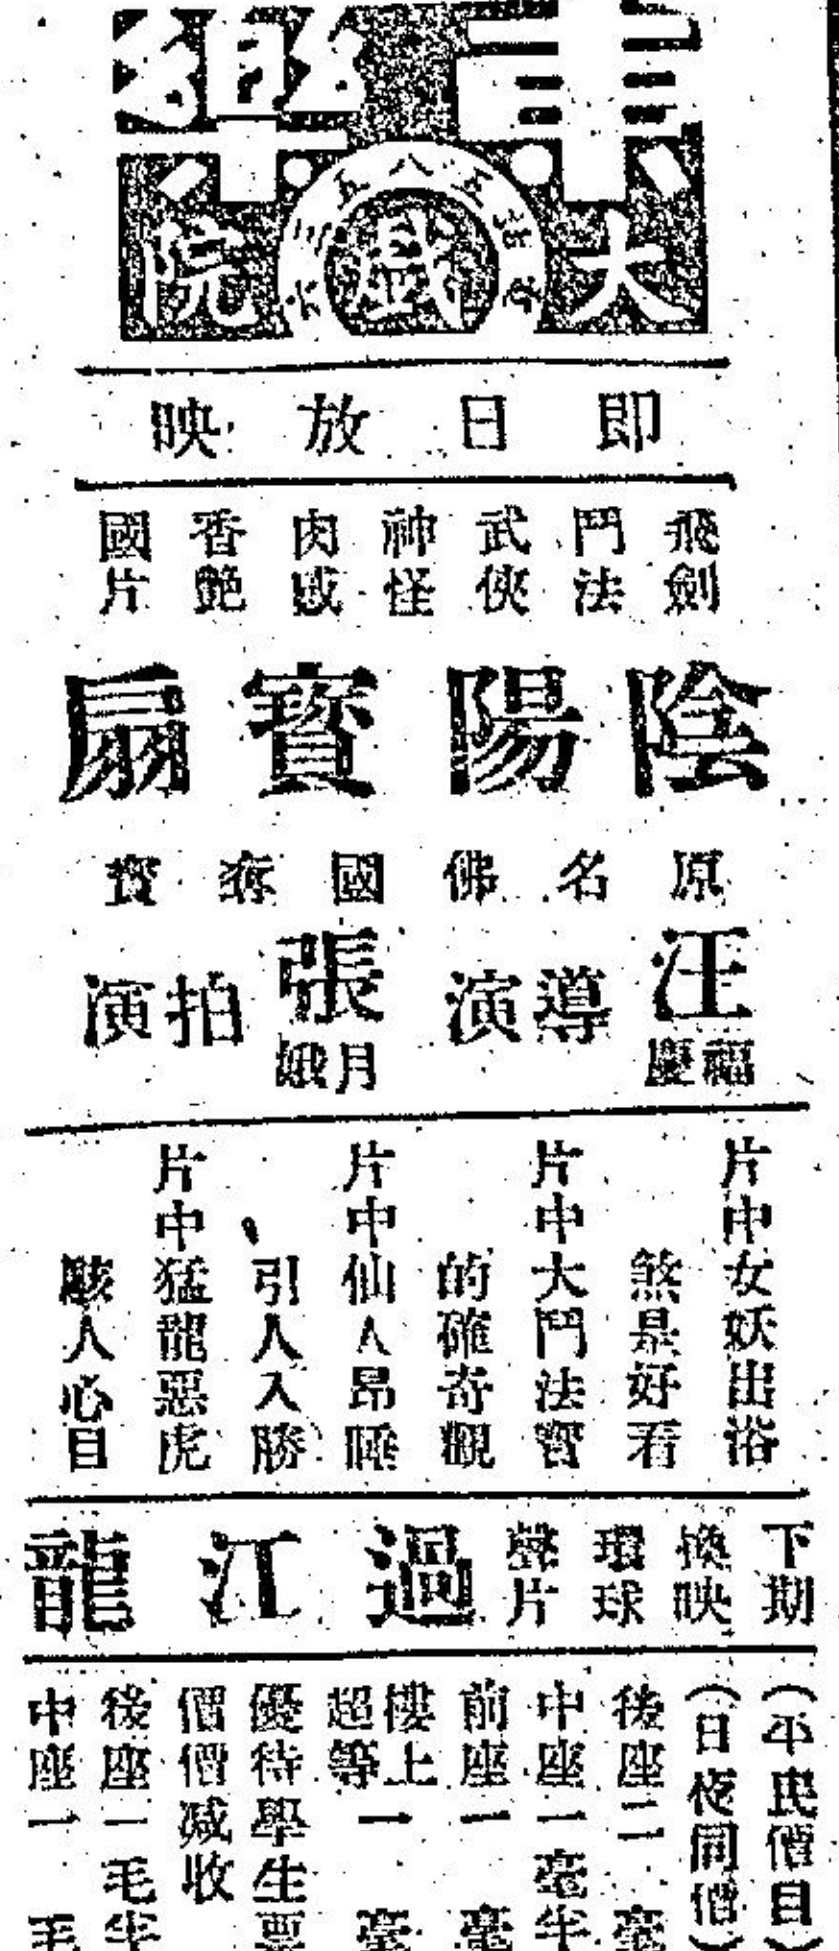 樂
大戲院
話五八五三
即日放映
飛劍
鬥法
武俠
神怪
肉感
香艷
國片
陰陽寶扇
原名佛國奪寶
汪福慶導演
張月娥拍演
片中女妖出浴
煞是好看
片中大鬥法寶
的確奇觀
片中仙人昂睡
引人入勝
片中猛龍惡虎
駭人心目
下期
換映
環球
聲片
過江龍
(平民價目)
(日夜同價)
後座二毫
中座一毫半
前座一毫
樓上超等一毫
優待學生票
價價減收
後座一毛半
中座一毛